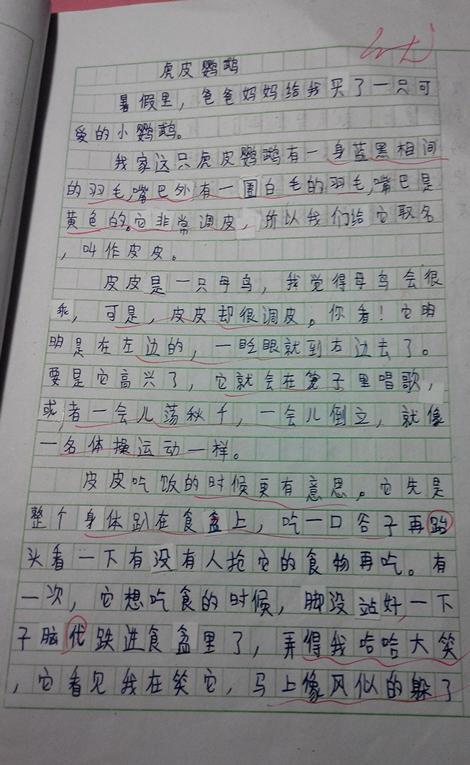 虎皮鹦鹉
暑假里，爸爸妈妈给我买了一只可
爱的小鹦鹉。
我家这只虎皮鹦鹉有一身蓝黑相间
的羽毛，嘴巴外有一圈白毛的羽毛，嘴巴是
黄色的。它非常调皮，所以我们给它取名
，叫作皮皮。
皮皮是一只母鸟，我觉得母鸟会很
乖，可是，皮皮却很调皮。你看！它明
明是在左边的，一眨眼就到右边去了。
要是它高兴了，它就会在笼子里唱歌，
或者一会儿荡秋千，一会儿倒立，就像
一名体操运动一样。
皮皮吃饭的时候更有意思。它先是
整个身体趴在食盒上，吃一口谷子再跆
头看一下有没有人抢它的食物再吃。有
一次，它想吃食的时候，脚没站好，一下
子脑代跌进食盒里了，弄得我哈哈大笑
，它看见我在笑它，马上像风似的躲了